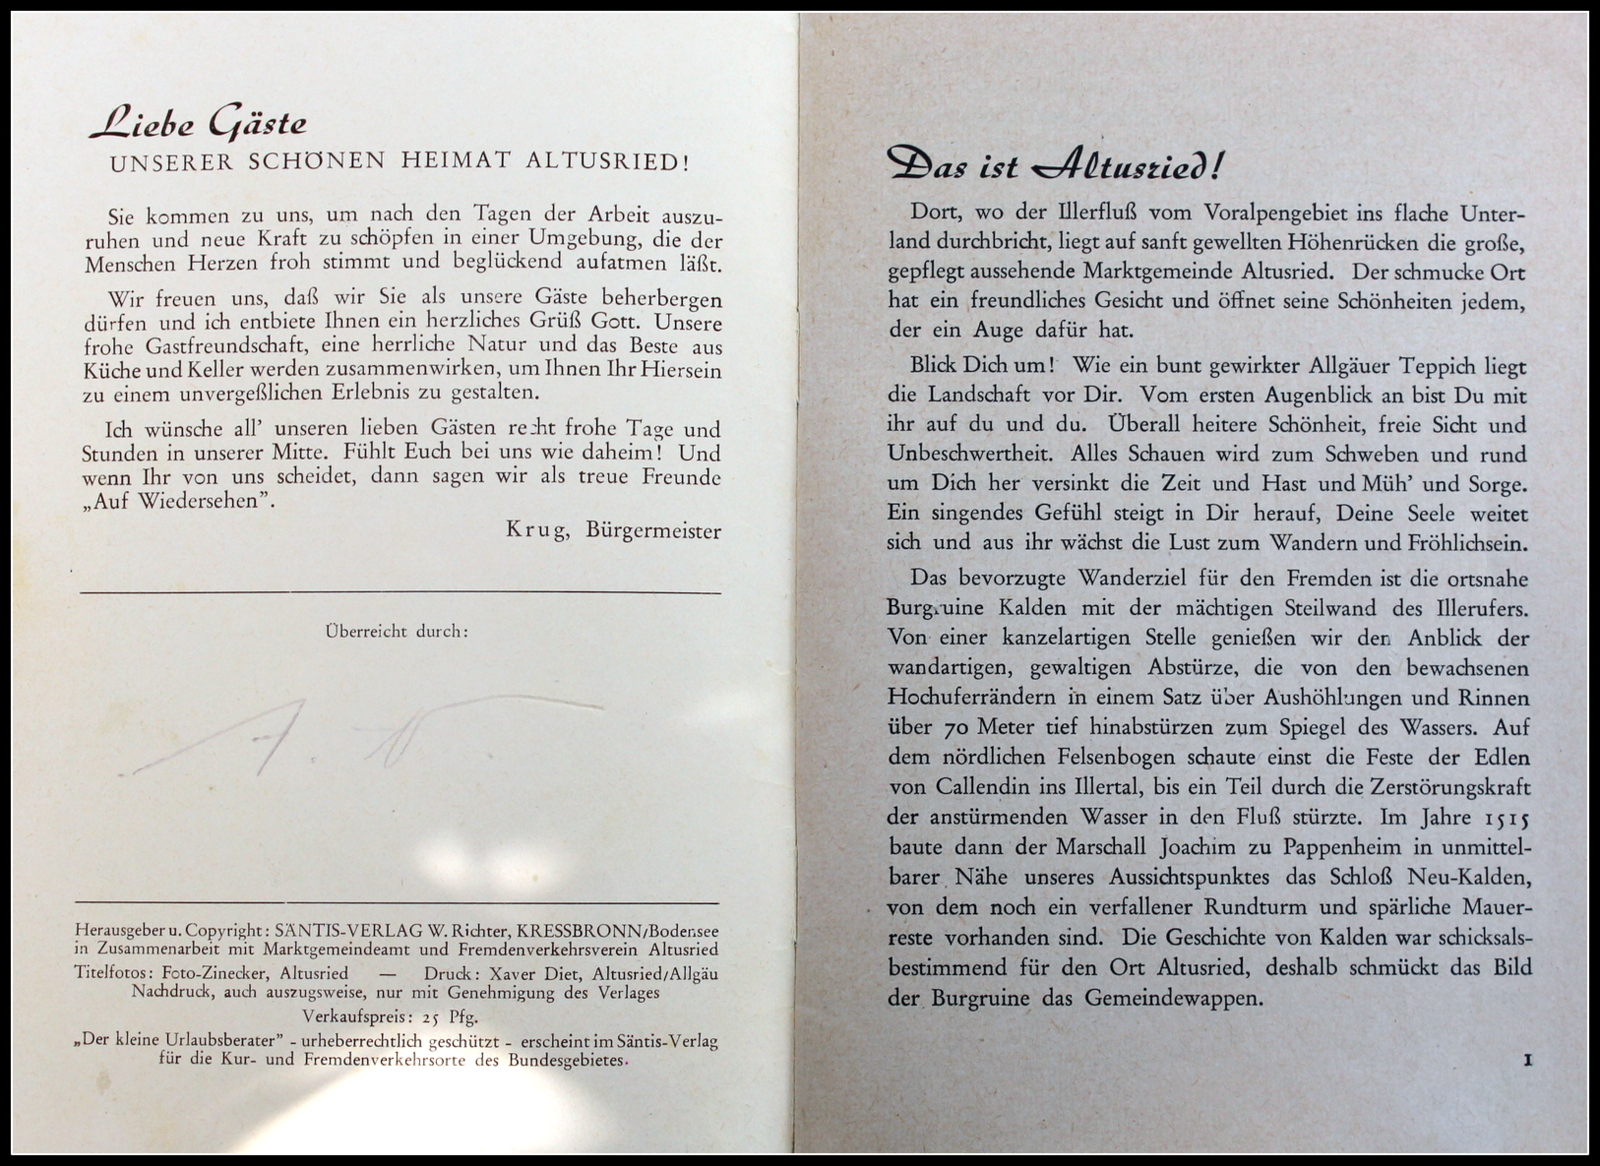 Liebe Gäste
UNSERER SCHÖNEN HEIMAT ALTUSRIED!
Sie kommen zu uns, um nach den Tagen der Arbeit auszu-
ruhen und neue Kraft zu schöpfen in einer Umgebung, die der
Menschen Herzen froh stimmt und beglückend aufatmen läßt.
Wir freuen uns, daß wir Sie als unsere Gäste beherbergen
dürfen und ich entbiete Ihnen ein herzliches Grüß Gott. Unsere
frohe Gastfreundschaft, eine herrliche Natur und das Beste aus
Küche und Keller werden zusammenwirken, um Ihnen Ihr Hiersein
zu einem unvergeßlichen Erlebnis zu gestalten.
Ich wünsche all’ unseren lieben Gästen recht frohe Tage und
Stunden in unserer Mitte. Fühlt Euch bei uns wie daheim! Und
wenn Ihr von uns scheidet, dann sagen wir als treue Freunde
„Auf Wiedersehen”.
Krug, Bürgermeister
Überreicht durch:
Herausgeber u. Copyright: SÄNTIS-VERLAG W. Richter, KRESSBRONN/Bodensee
in Zusammenarbeit mit Marktgemeindeamt und Fremdenverkehrsverein Altusried
Titelfotos: Foto-Zinecker, Altusried — Druck: Xaver Diet, Altusried/Allgäu
Nachdruck, auch auszugsweise, nur mit Genehmigung des Verlages
Verkaufspreis: 25 Pfg.
„Der kleine Urlaubsberater” - urheberrechtlich geschützt - erscheint im Säntis-Verlag
für die Kur- und Fremdenverkehrsorte des Bundesgebietes.
Das ist Altusried!
Dort, wo der Illerfluß vom Voralpengebiet ins flache Unter-
land durchbricht, liegt auf sanft gewellten Höhenrücken die große,
gepflegt aussehende Marktgemeinde Altusried. Der schmucke Ort
hat ein freundliches Gesicht und öffnet seine Schönheiten jedem,
der ein Auge dafür hat.
Blick Dich um! Wie ein bunt gewirkter Allgäuer Teppich liegt
die Landschaft vor Dir. Vom ersten Augenblick an bist Du mit
ihr auf du und du. Überall heitere Schönheit, freie Sicht und
Unbeschwertheit. Alles Schauen wird zum Schweben und rund
um Dich her versinkt die Zeit und Hast und Müh’ und Sorge.
Ein singendes Gefühl steigt in Dir herauf, Deine Seele weitet
sich und aus ihr wächst die Lust zum Wandern und Fröhlichsein.
Das bevorzugte Wanderziel für den Fremden ist die ortsnahe
Burgruine Kalden mit der mächtigen Steilwand des Illerufers.
Von einer kanzelartigen Stelle genießen wir den Anblick der
wandartigen, gewaltigen Abstürze, die von den bewachsenen
Hochuferrändern in einem Satz über Aushöhlungen und Rinnen
über 70 Meter tief hinabstürzen zum Spiegel des Wassers. Auf
dem nördlichen Felsenbogen schaute einst die Feste der Edlen
von Callendin ins Illertal, bis ein Teil durch die Zerstörungskraft
der anstürmenden Wasser in den Fluß stürzte. Im Jahre 1515
baute dann der Marschall Joachim zu Pappenheim in unmittel-
barer Nähe unseres Aussichtspunktes das Schloß Neu-Kalden,
von dem noch ein verfallener Rundturm und spärliche Mauer-
reste vorhanden sind. Die Geschichte von Kalden war schicksals-
bestimmend für den Ort Altusried, deshalb schmückt das Bild
der Burgruine das Gemeindewappen.
1